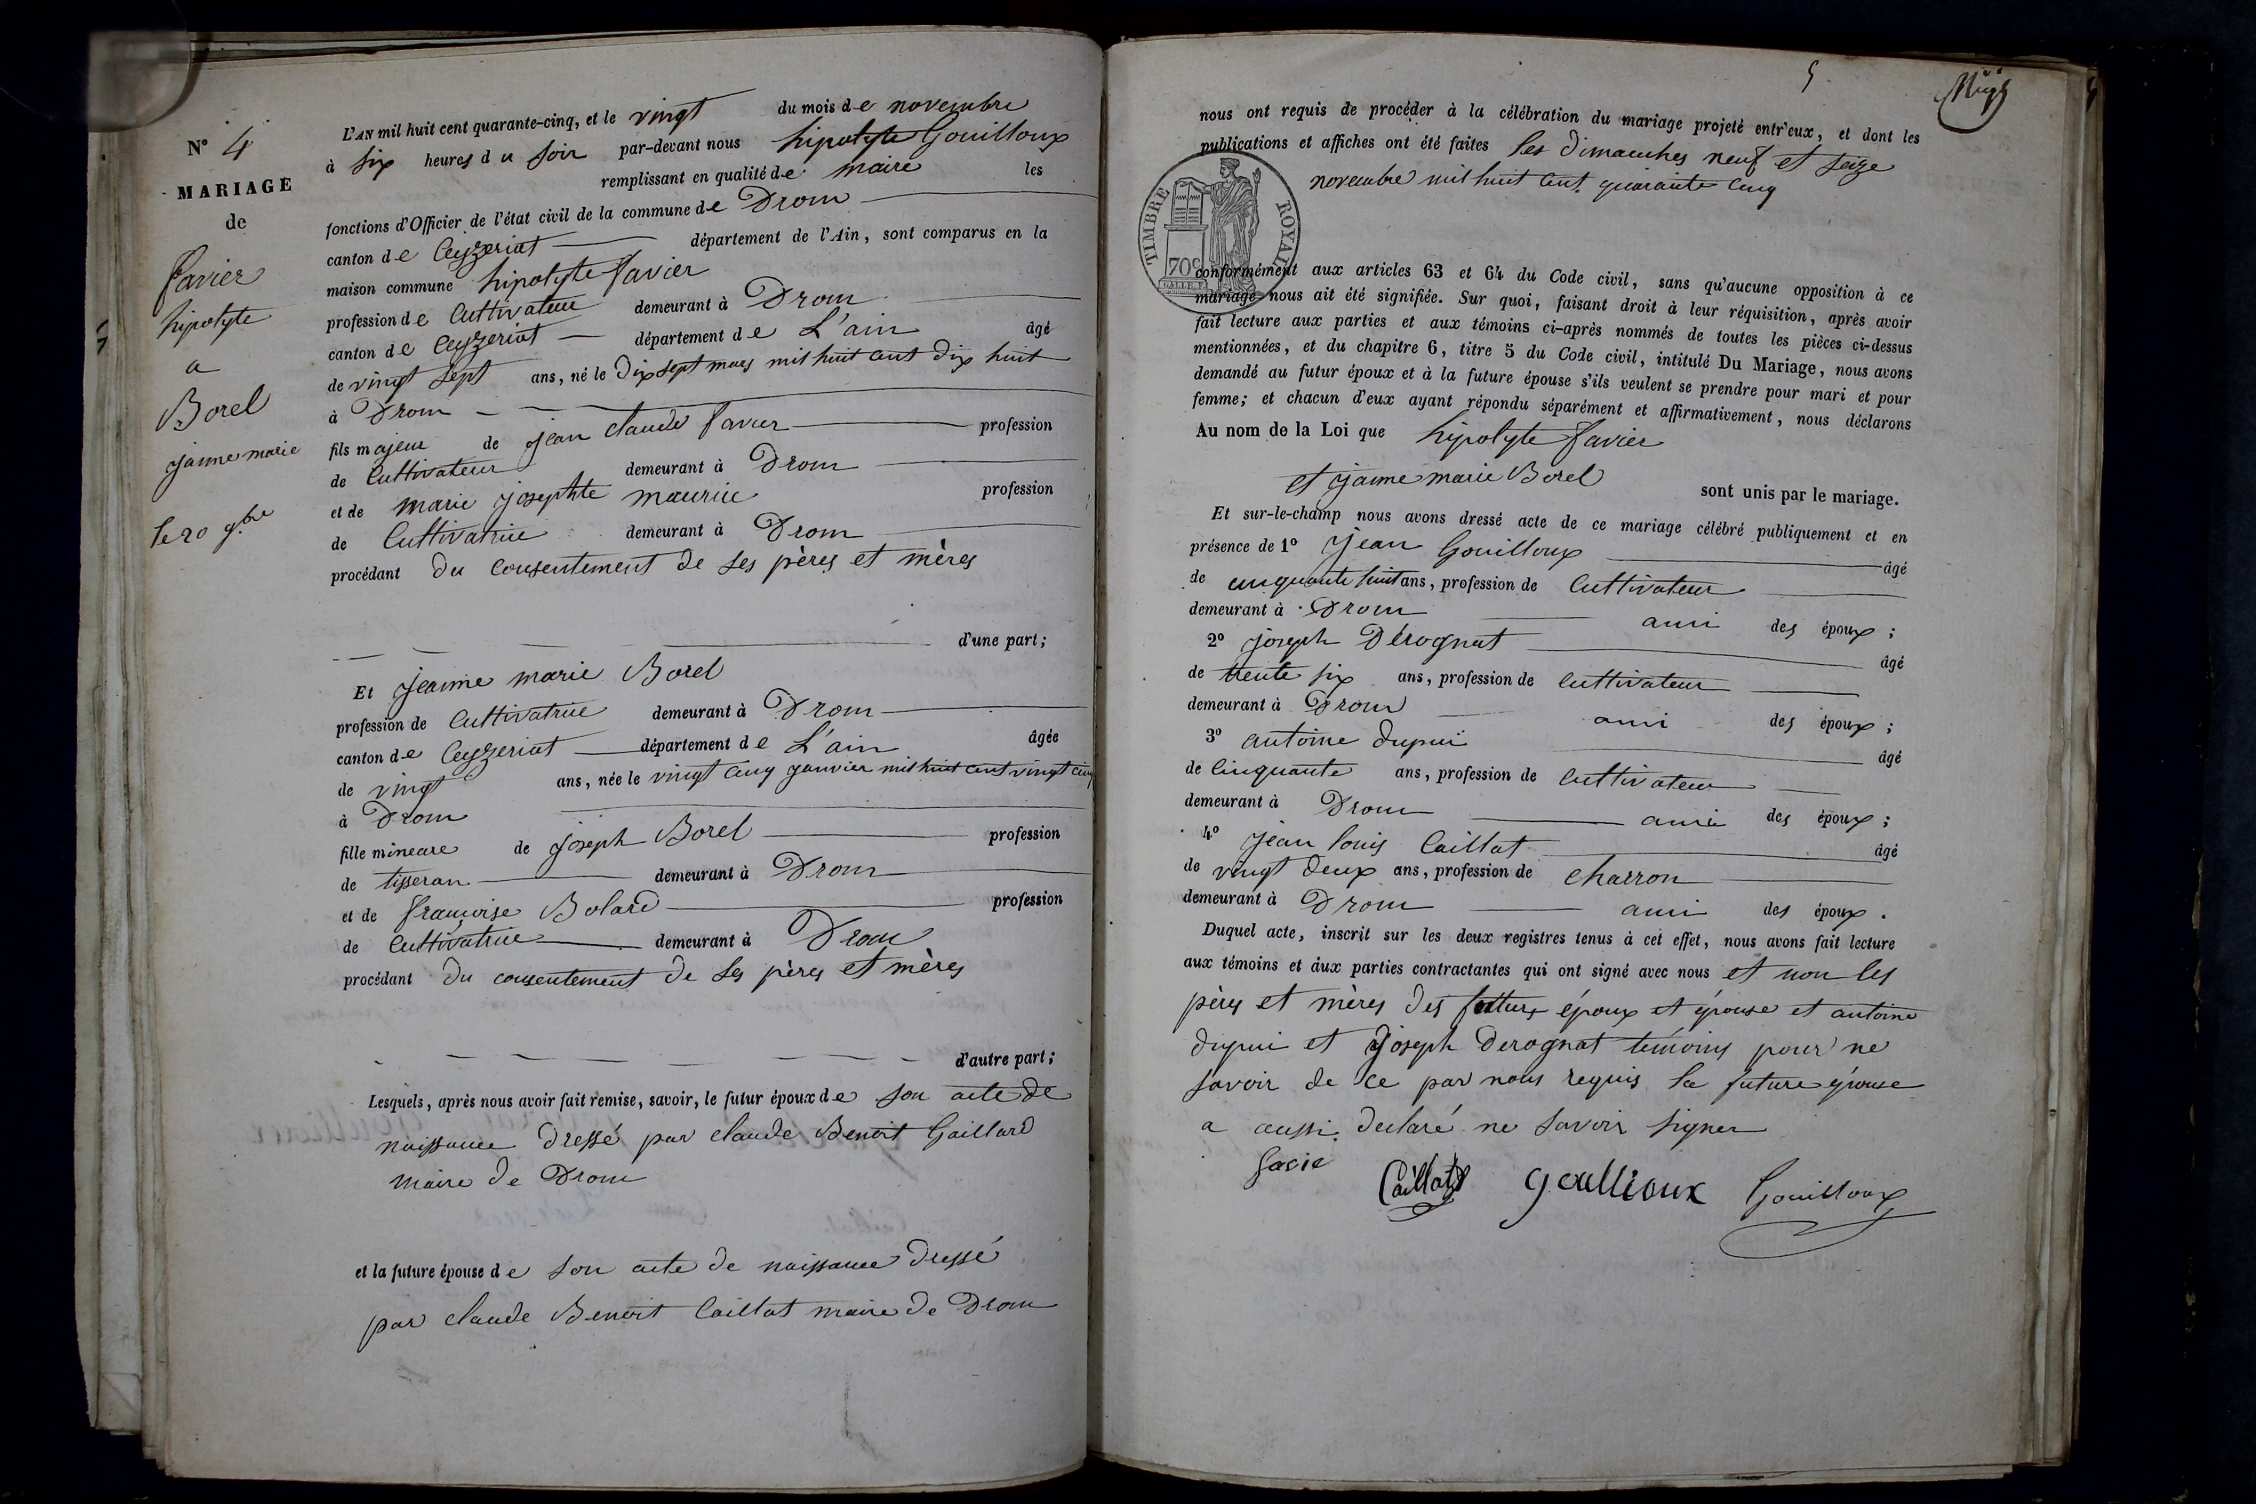 N° 4
MARIAGE
de
favier
hipolyte
a
Borel
jeanne marie
le 20 9.bre
L'AN mil huit cent quarante-cinq, et le vingt du mois de novembre
à six heures du soir par-devant nous hipolyte Gouilloux
remplissant en qualité de maire les
fonctions d'Officier de l'état civil de la commune de Drom
canton de Ceyzeriat département de l'Ain, sont comparus en la
maison commune hipolyte favier
profession de Cultivateur demeurant à Drom
canton de Ceyzeriat département de L'ain âgé
de vingt sept ans, né le Dix sept mars mil huit cent dix huit
à Drom
fils majeur de jean claude favier profession
de Cultivateur demeurant à Drom
et de marie josephte maurice profession
de Cultivatrice demeurant à Drom
procédant du consentement de ses pères et mères
d'une part;
Et jeanne marie Borel
profession de Cultivatrice demeurant à Drom
canton de Ceyzeriat département de L'ain âgée
de vingt ans, née le vingt cinq janvier mil huit cent vingt cinq
à Drom
fille mineure de joseph Borel profession
de tisseran demeurant à Drom
et de françoise Bolard profession
de Cultivatrice demeurant à Drom
procédant du consentement de ses pères et mères
d'autre part;
Lesquels, après nous avoir fait remise, savoir, le futur époux de son acte de
naissance dressé par claude Benoit Gaillard
maire de Drom
et la future épouse de son acte de naissance dressé
par claude Benoit Caillat maire de Drom
5
nous ont requis de procéder à la célébration du mariage projeté entr'eux, et dont les
publications et affiches ont été faites les dimanches neuf et seize
novembre mil huit cent quarante cinq
TIMBRE ROYAL
70c
conformément aux articles 63 et 64 du Code civil, sans qu'aucune opposition à ce
mariage nous ait été signifiée. Sur quoi, faisant droit à leur réquisition, après avoir
fait lecture aux parties et aux témoins ci-après nommés de toutes les pièces ci-dessus
mentionnées, et du chapitre 6, titre 5 du Code civil, intitulé Du Mariage, nous avons
demandé au futur époux et à la future épouse s'ils veulent se prendre pour mari et pour
femme; et chacun d'eux ayant répondu séparément et affirmativement, nous déclarons
Au nom de la Loi que hipolyte favier
et jeanne marie Borel sont unis par le mariage.
Et sur-le-champ nous avons dressé acte de ce mariage célébré publiquement et en
présence de 1° jean Gouilloux âgé
de cinquante huit ans, profession de Cultivateur
demeurant à Drom ami des époux;
2° joseph Dérognat âgé
de trente six ans, profession de Cultivateur
demeurant à Drom ami des époux;
3° antoine dupui âgé
de Cinquante ans, profession de Cultivateur
demeurant à Drom ami des époux;
4° jean louis Caillat âgé
de vingt deux ans, profession de charron
demeurant à Drom ami des époux.
Duquel acte, inscrit sur les deux registres tenus à cet effet, nous avons fait lecture
aux témoins et aux parties contractantes qui ont signé avec nous et non les
pères et mères des futurs époux et épouse et antoine
dupui et joseph derognat témoins pour ne
savoir de ce par nous requis la future épouse
a aussi declaré ne savoir signer
favie Caillat goullioux Gouilloux